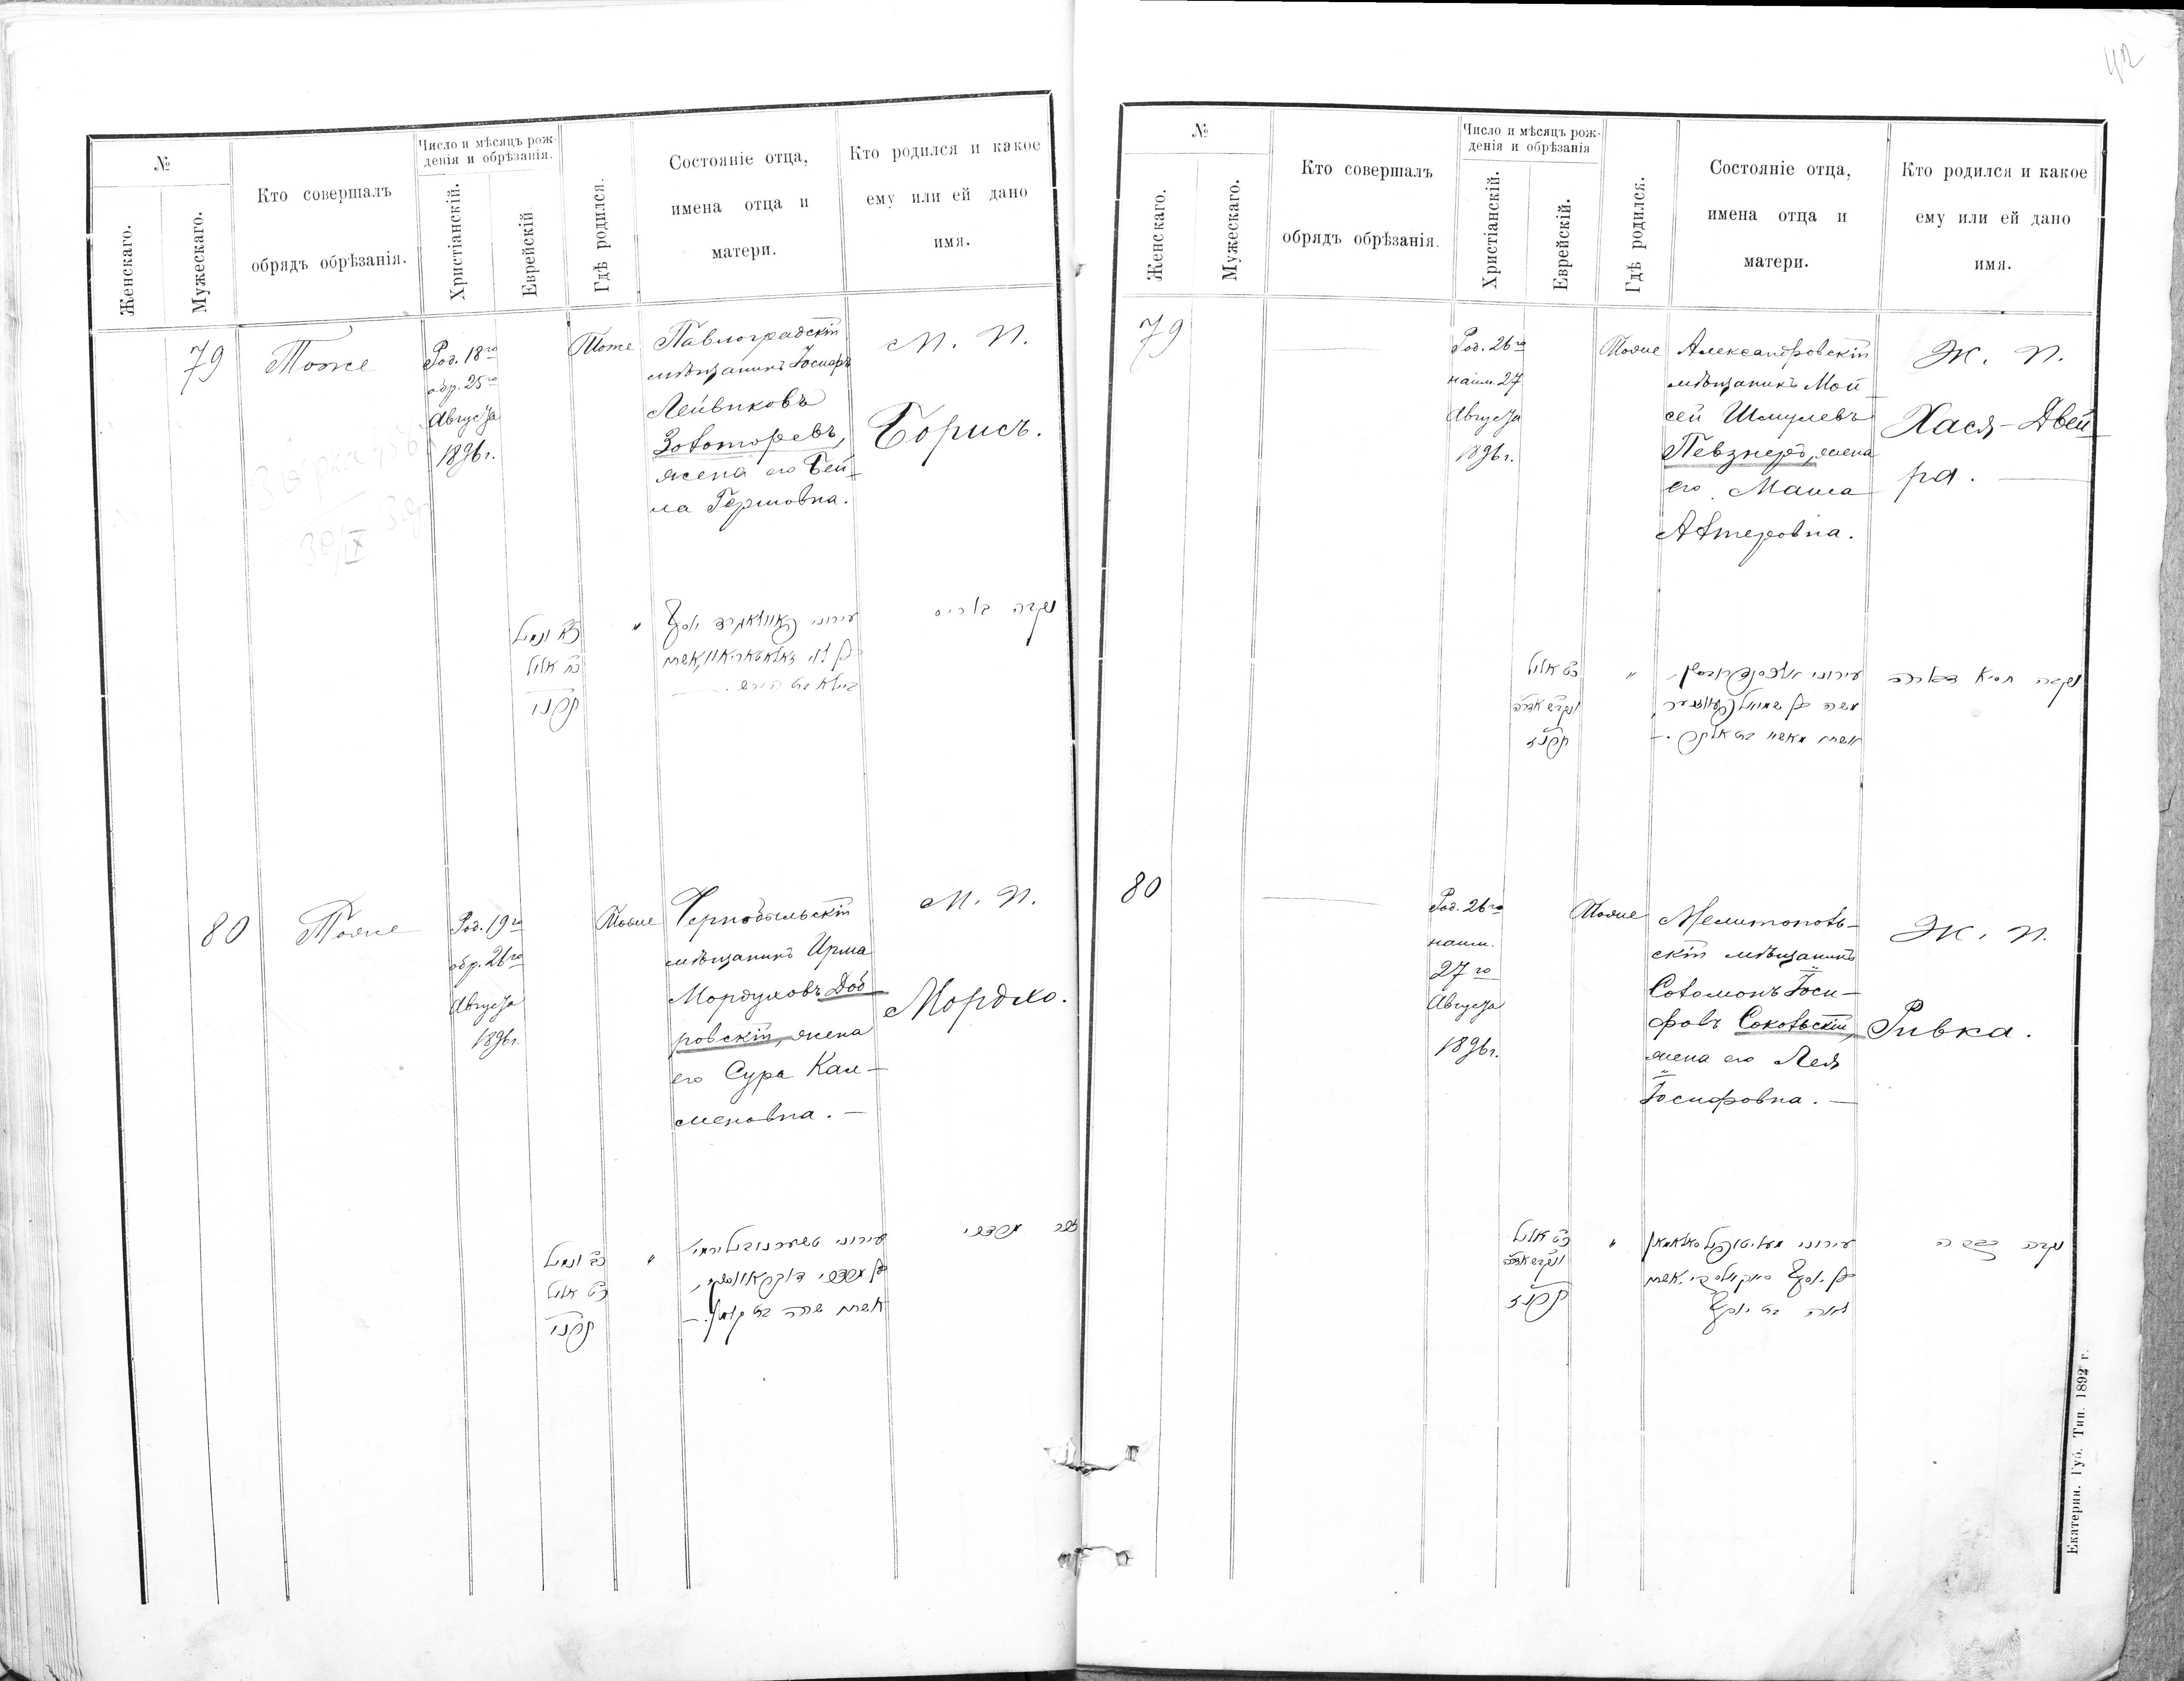 42
№
Женскаго.
Мужескаго.
Кто совершалъ
обрядъ обрѣзанія.
Число и мѣсяцъ рож-
денія и обрѣзанія.
Христіанскій.
Еврейскій.
Гдѣ родился.
Состояніе отца,
имена отца и
матери.
Кто родился и какое
ему или ей дано
имя.
79
Тоже
Род. 18го
обр. 25го
Августа
1896 г.
Тоже
Павлоградскій
мѣщанинъ Іосифъ
Лейвиковъ
Золоторевъ,
жена его Бей-
ла Гершовна.
М. П.
Борисъ.
30/IX
ונמול
כח אלול
עירוני
בילא בת הירש.
80
Тоже
Род. 19го
обр. 26го
Августа
1896 г.
Тоже
Чернобыльскій
мѣщанинъ Ирма
Мордуховъ Доб-
ровскій, жена
его Сура Кал-
меновна. —
М. П.
Мордко.
כב ונמול
כט אלול
עירוני
אשתו שרה בת קלמן. —
זכר מרדכי
№
Женскаго.
Мужескаго.
Кто совершалъ
обрядъ обрѣзанія.
Число и мѣсяцъ рож-
денія и обрѣзанія
Христіанскій.
Еврейскій.
Гдѣ родился.
Состояніе отца,
имена отца и
матери.
Кто родился и какое
ему или ей дано
имя.
79
Род. 26го
наим. 27
Августа
1896 г.
Тоже
Александровскій
мѣщанинъ Мой-
сей Шмулевъ
Певзнеръ, жена
его Маша
Алтеровна.
Ж. П.
Хася-Двей-
ра. —
כט אלול
עירוני
משה בן שמואל פעווזנער
נקבה חסיא
80
Род. 26го
наим.
27го
Августа
1896 г.
Тоже
Мелитополь-
скій мѣщанинъ
Соломонъ Іоси-
фовъ Сокольскій,
жена его Лея
Іосифовна. —
Ж. П.
Ривка.
כט אלול
עירוני
לאה בת יוסף
נקבה רבקה
Екатерин. Губ. Тип. 1892 г.